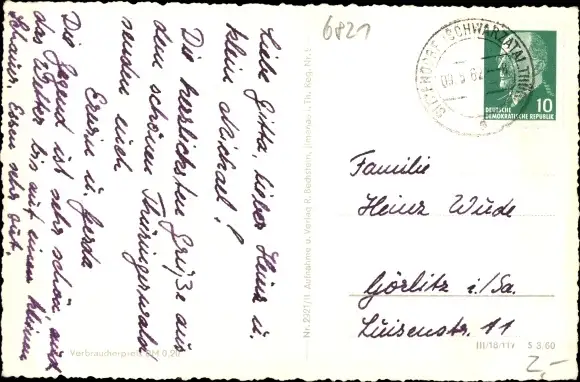 6821
Liebe Gitta, lieber Heinz u.
klein Michael!
Die herzlichsten Grüße aus
dem schönen Thüringerwald
senden euch
Erwin u. Gerda
Die Gegend ist sehr schön auch
das Wetter bis auf einen kleinen
Schauer. Essen sehr gut.
Verbraucherpreis DM 0,20
Nr. 2321/II Aufnahme u. Verlag R. Bechstein, Ilmenau i. Th. Reg.-Nr.
SITZENDORF (SCHWARZATAL, THÜR)
DEUTSCHE
DEMOKRATISCHE REPUBLIK
10
Familie
Heinz Wude
Görlitz i/Sa.
Luisenstr. 11
III/18/117 S 3/60
2,-